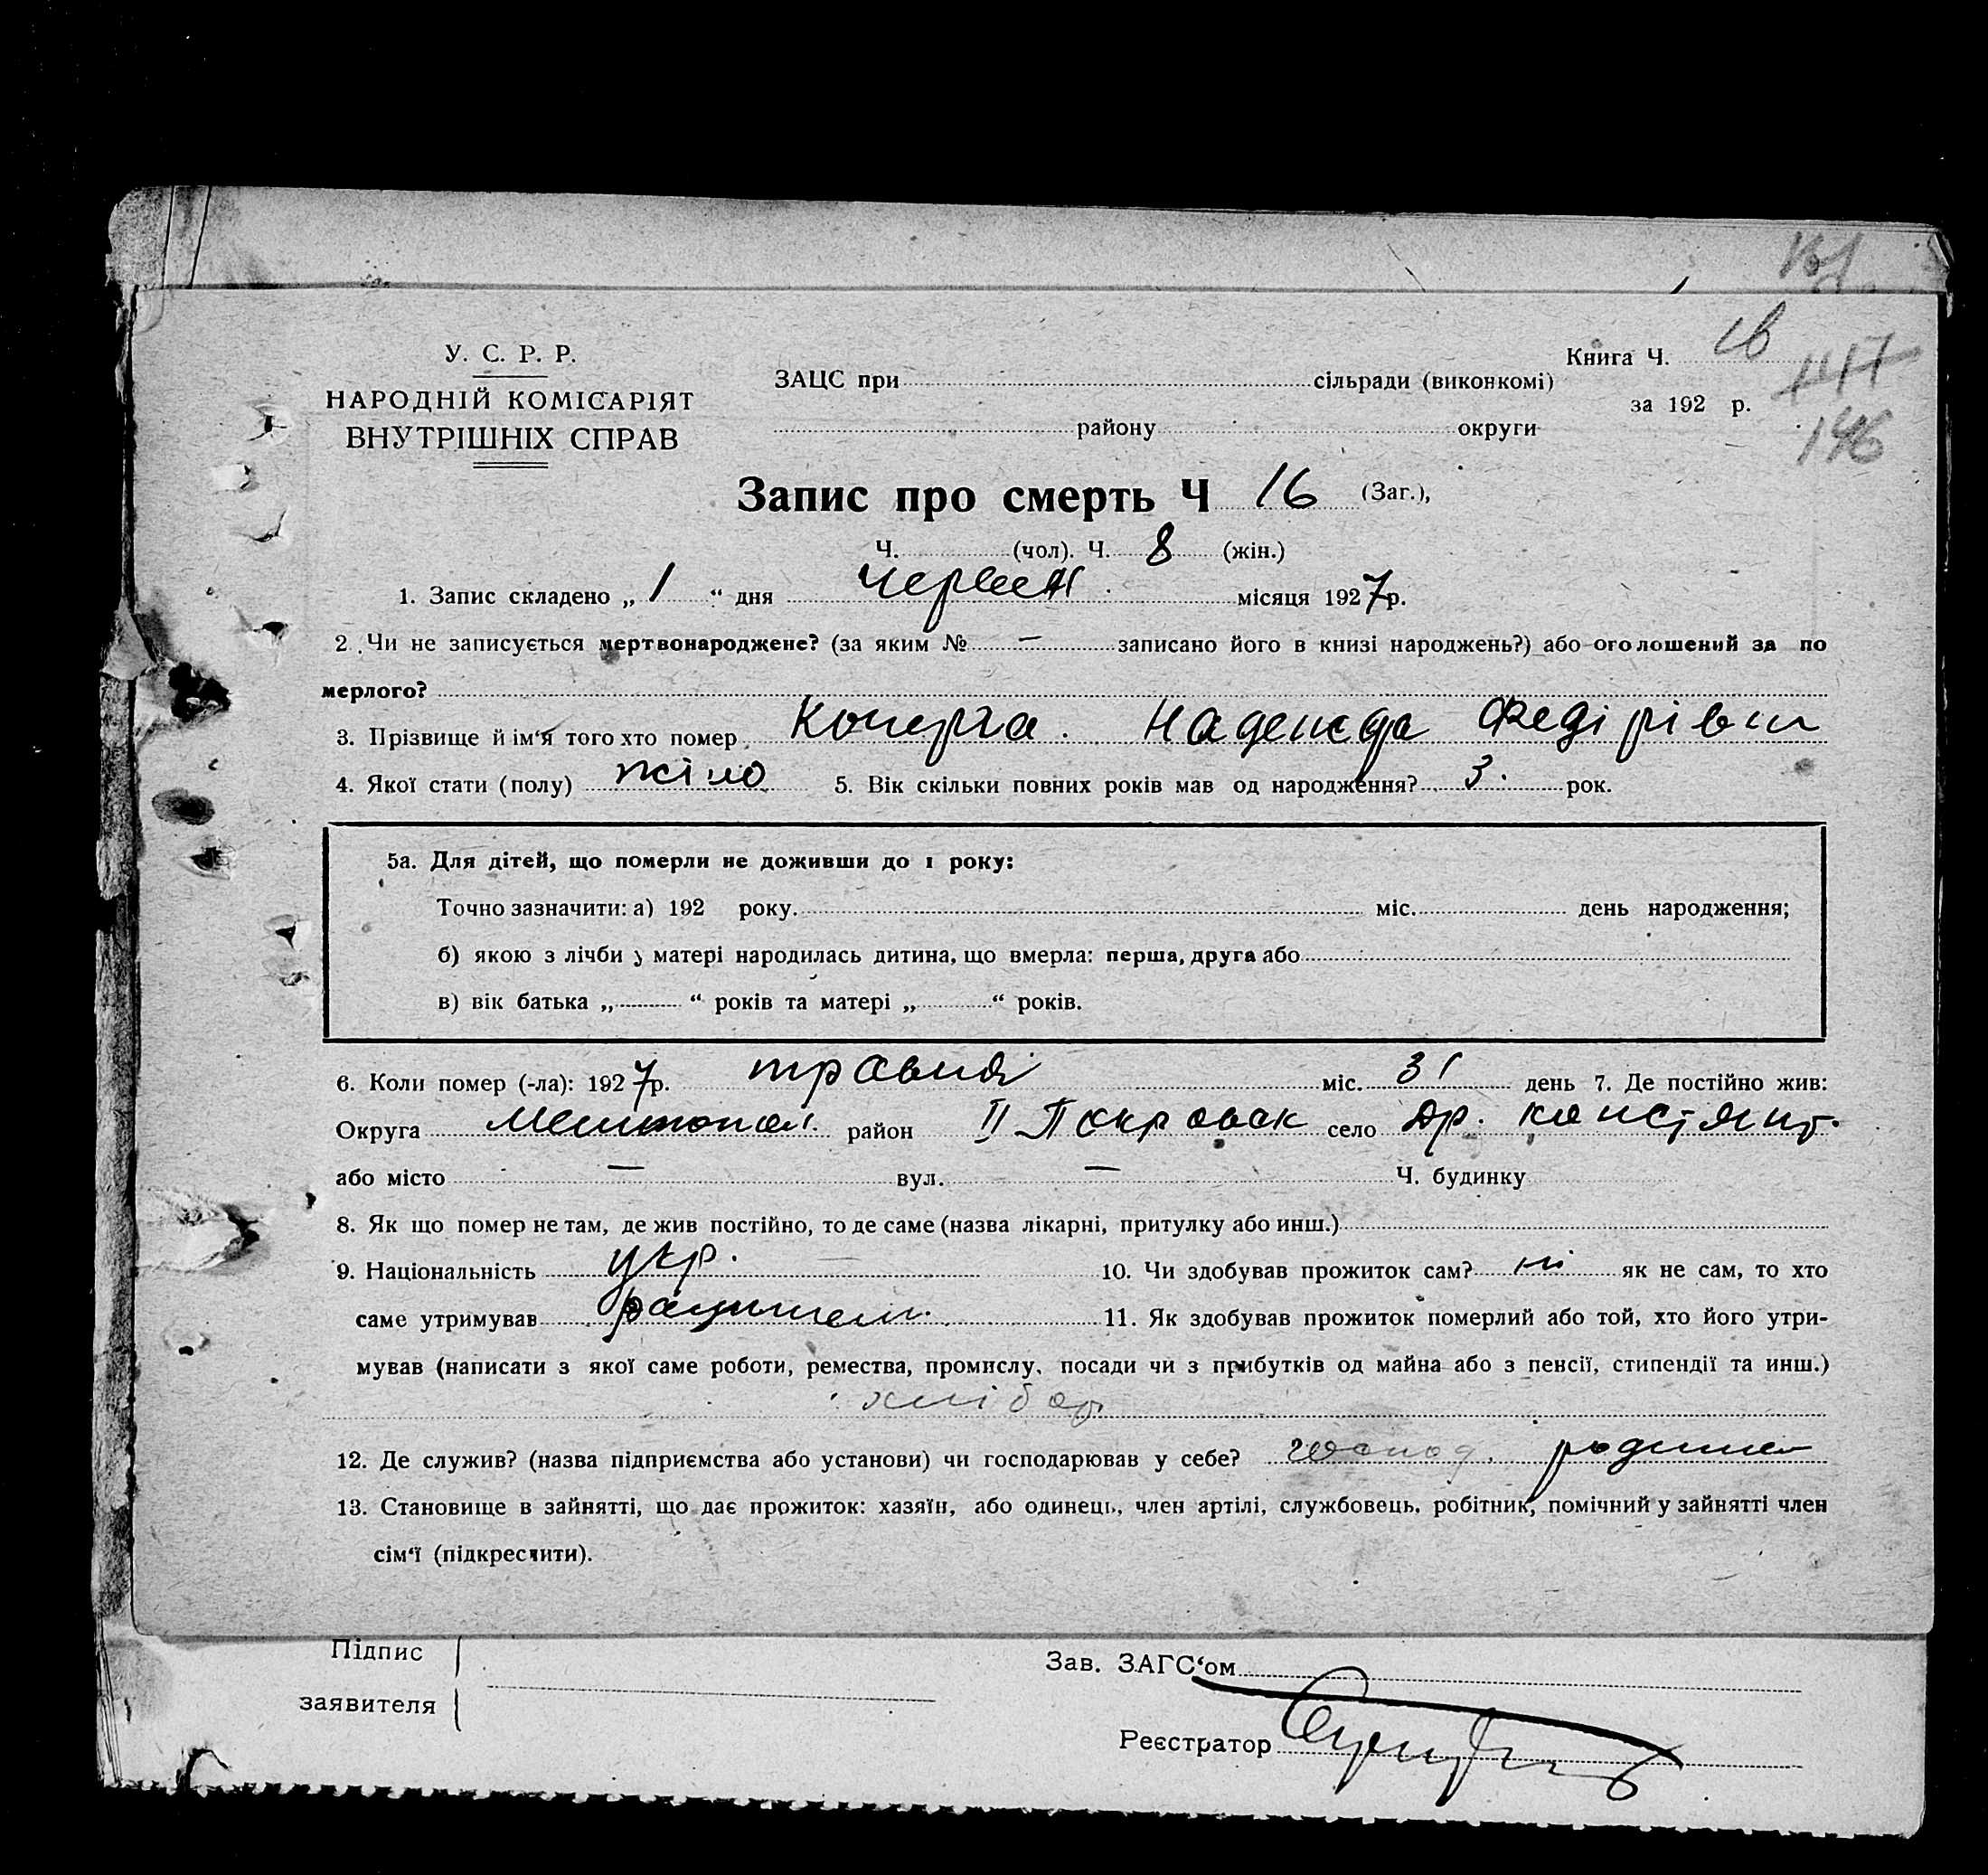 У. С. Р. Р.
НАРОДНІЙ КОМІСАРІЯТ
ВНУТРІШНІХ СПРАВ
ЗАЦС при сільради (виконкомі)
району округи
Книга Ч.
за 192 р.
146
Запис про смерть Ч 16 (Заг.),
Ч. (чол). Ч. 8 (жін.)
1. Запис складено „ 1 “ дня червня місяця 1927 р.
2. Чи не записується мертвонароджене? (за яким № — записано його в книзі народжень?) або оголошений за по
мерлого?
3. Прізвище й ім‘я того хто помер Кочерга Надежда Федірівн
4. Якої стати (полу) жіно 5. Вік скільки повних років мав од народження? 3. рок.
5а. Для дітей, що померли не доживши до 1 року:
Точно зазначити: а) 192 року. міс. день народження;
б) якою з лічби у матері народилась дитина, що вмерла: перша, друга або
в) вік батька „ “ років та матері „ “ років.
6. Коли помер (-ла): 1927 р. травня міс. 31 день 7. Де постійно жив:
Округа Мелитопол. район II Покровск село Др. Констянт.
або місто — вул. — Ч. будинку
8. Як що помер не там, де жив постійно, то де саме (назва лікарні, притулку або инш.)
9. Національність укр. 10. Чи здобував прожиток сам? ні як не сам, то хто
саме утримував 11. Як здобував прожиток померлий або той, хто його утри-
мував (написати з якої саме роботи, ремества, промислу, посади чи з прибутків од майна або з пенсії, стипендії та инш.)
хлібор.
12. Де служив? (назва підприємства або установи) чи господарював у себе? господ. родині
13. Становище в зайнятті, що дає прожиток: хазяїн, або одинець, член артілі, службовець, робітник, помічний у зайнятті член
сім‘ї (підкреслити).
Підпис
заявителя
Зав. ЗАГС‘ом
Реєстратор